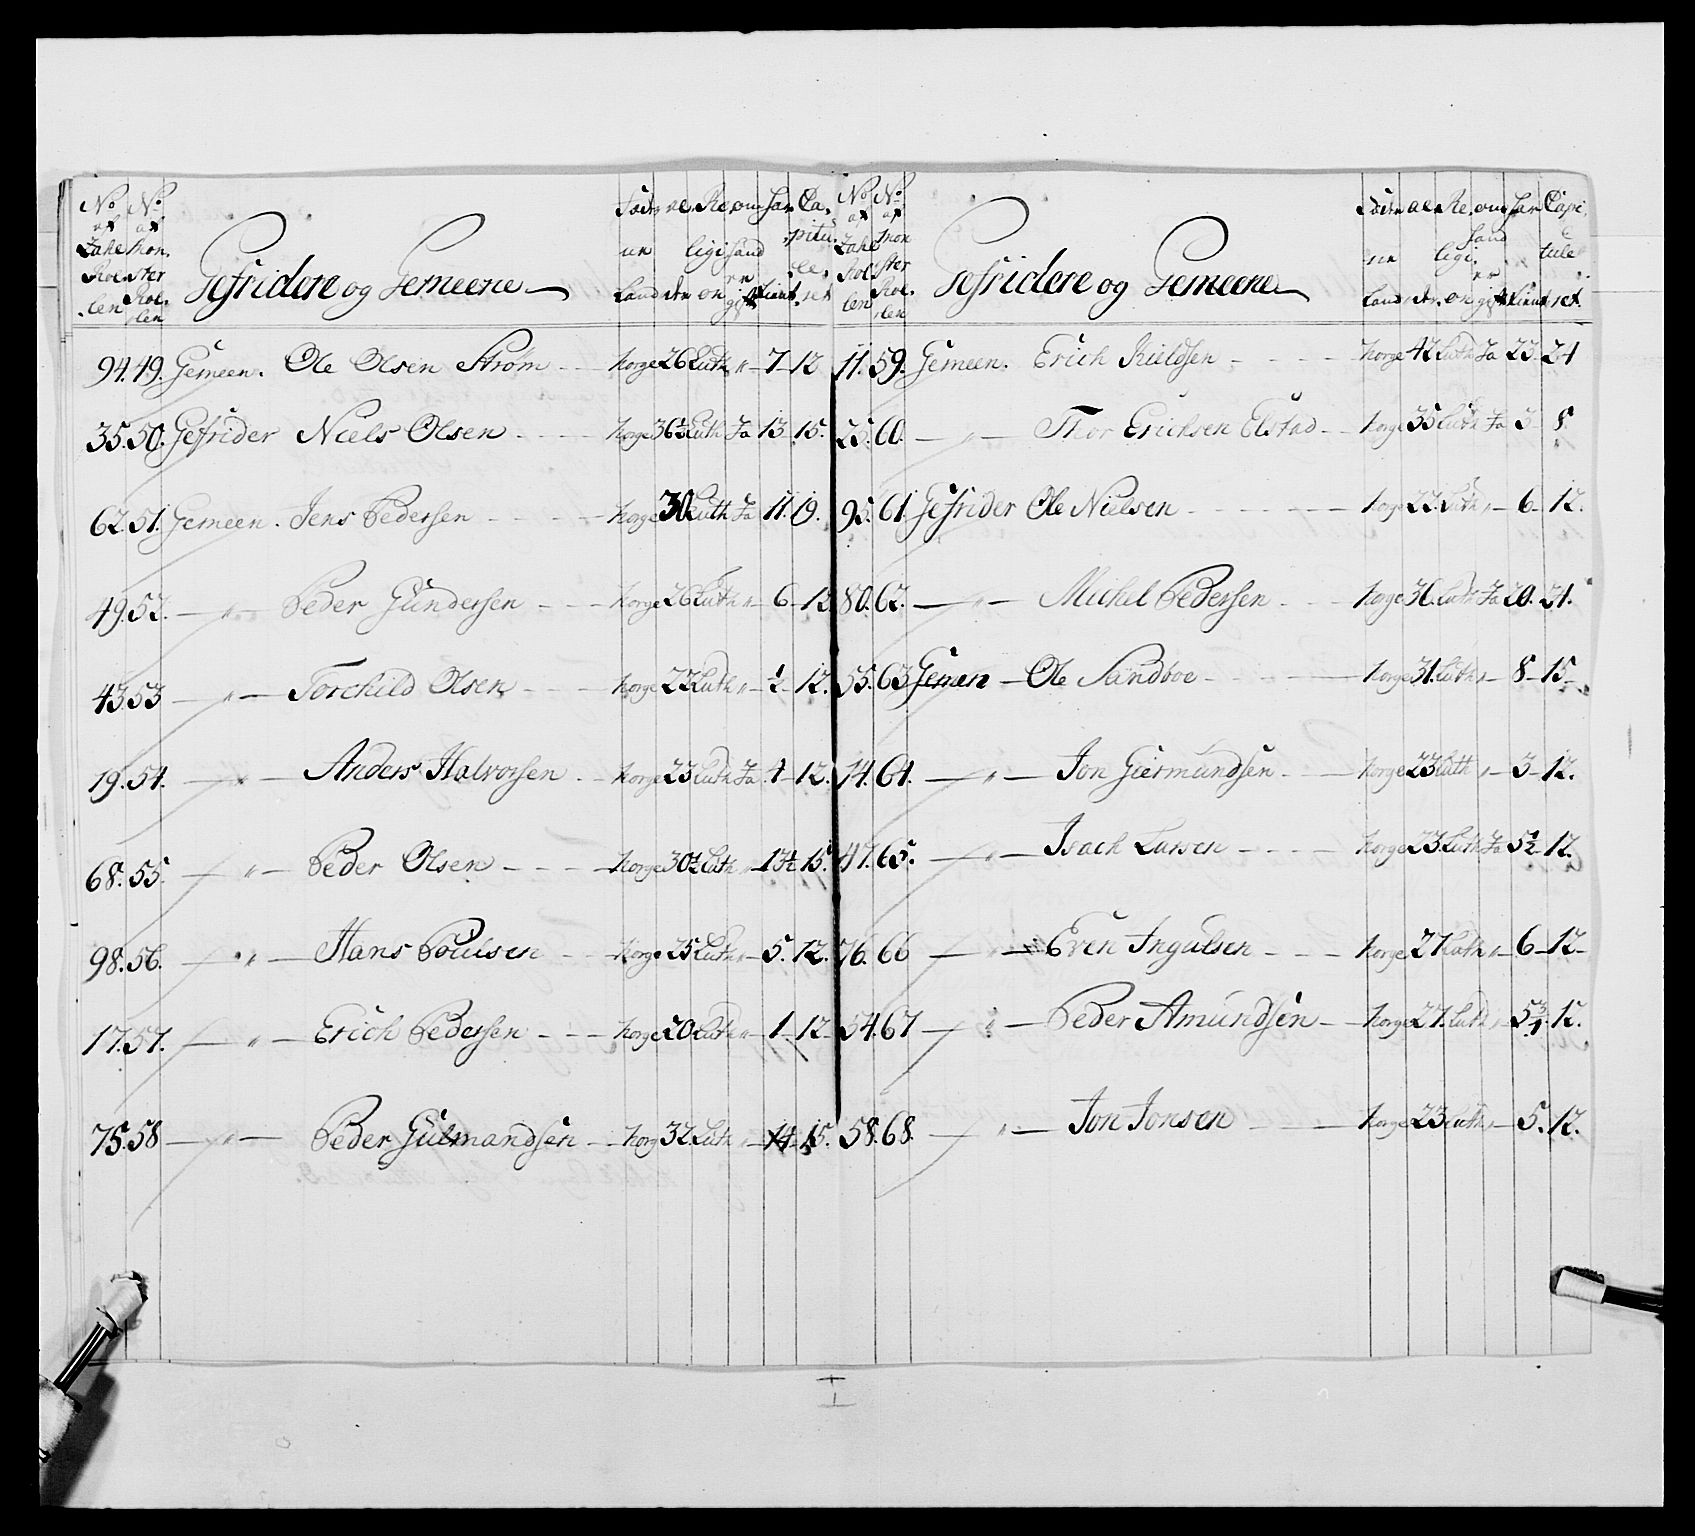 No af Zahl Rollen No af Monster Rollen Gefridere og Gemeene Føde land Religion om hand er gift har tient Capituleret
94. 49. Gemeen. Ole Olsen Strøm Norge 26 Luth " 7 12
35. 50. Gefrider Niels Olsen Norge 36½ Luth Ja 13 15.
62. 51. Gemeen. Jens Pedersen Norge 30 Luth Ja 11. 19.
49. 52. " Peder Gundersen Norge 26 Luth " 6 12
43. 53 " Torchild Olsen Norge 23 Luth " ½ 12.
19. 54. " Anders Halvorsen Norge 23 Luth Ja 4 12.
68. 55. " Peder Olsen Norge 30½ Luth 13½ 15.
98. 56. " Hans Poulsen Norge 25 Luth " 5. 12.
17. 57. " Erich Pedersen Norge 20 Luth " 1 12
75. 58 " Peder Gulmandsen Norge 32 Luth " 14 15.
No af Zahl Rollen No af Mon ster Rol len Gefridere og Gemeene Capi tule ret
11. 59. Gemeen. Erich Kieldsen Norge 42 Luth Ja 23. 24
25. 60. " Thor Ericksen Elstad Norge 35 Luth Ja 3 8.
95. 61. Gefrider Ole Nielsen Norge 22. Luth " 6 12.
80. 62. " Michel Pedersen Norge 36. Luth Ja 20. 21.
55. 63 Gemen Ole Sandboe Norge 31. Luth " 8 15
14. 64. " Jon Giermundsen Norge 23 Luth " 3 12.
47. 65. " Isach Larsen Norge 23. Luth Ja 5½ 12.
76. 66 " Even Ingulsen Norge 27 Luth " 6 12
54. 67 " Peder Amundsen Norge 27. Luth " 5¾ 12.
58. 68. " Jon Jonsen Norge 23 Luth " 5. 12.